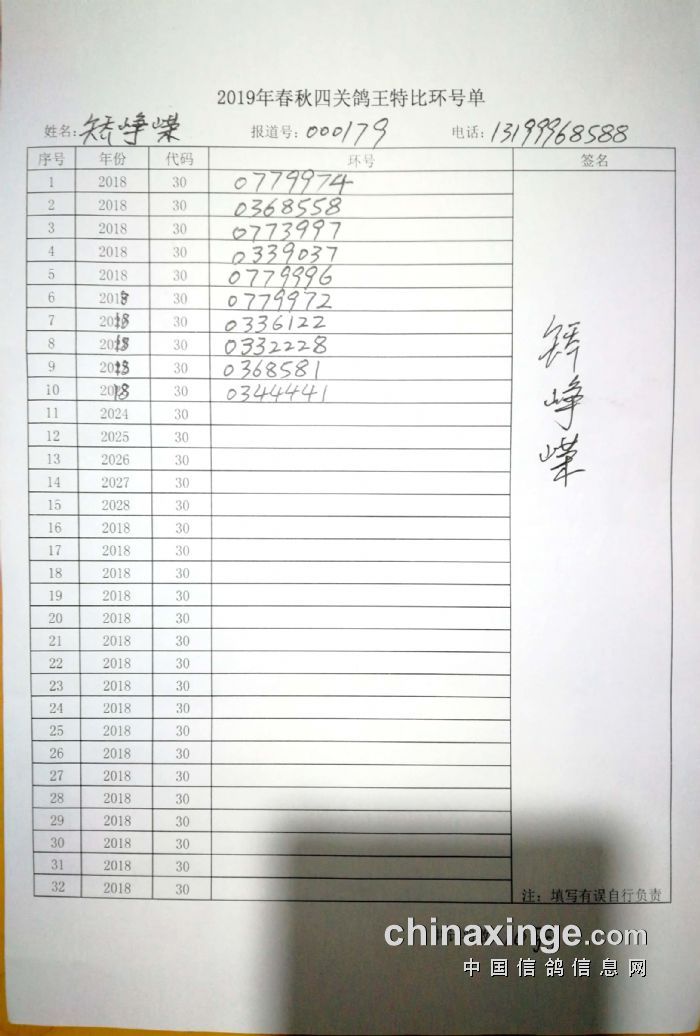 2019年春秋四关鸽王特比环号单
姓名:矫峥嵘 报道号:000179 电话:13199968588
序号 年份 代码 环号 签名
1 2018 30 0779974
2 2018 30 0368558
3 2018 30 0773997
4 2018 30 0339037
5 2018 30 0779996
6 2018 30 0779972
7 2018 30 0336122
8 2018 30 0332228
9 2018 30 0368581
10 2018 30 0344441
矫峥嵘
11 2024 30
12 2025 30
13 2026 30
14 2027 30
15 2028 30
16 2018 30
17 2018 30
18 2018 30
19 2018 30
20 2018 30
21 2018 30
22 2018 30
23 2018 30
24 2018 30
25 2018 30
26 2018 30
27 2018 30
28 2018 30
29 2018 30
30 2018 30
31 2018 30
32 2018 30
注：填写有误自行负责
chinaxinge.com
中国信鸽信息网